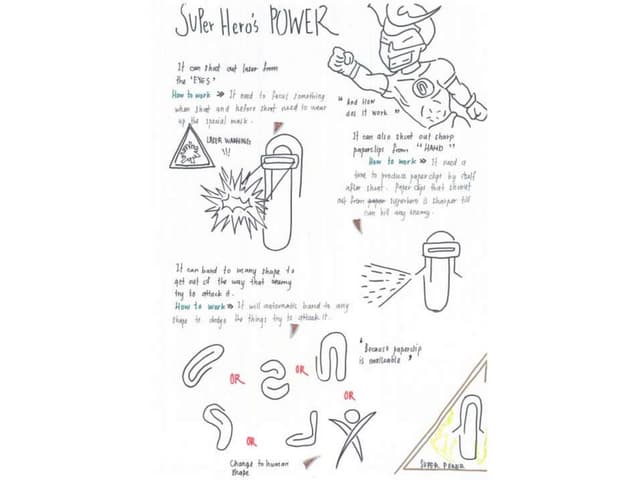 SUPer HerO's POWER
It can shoot out laser from
the 'EYES'
How to work >> It need to focus something
when shoot and before shoot need to wear
up the special mask.
LASER WARNING
!!!
" And How
does it work "
It can also shoot out sharp
paperclips from "HAND"
How to work >> It need a
time to produce paperclips by itself
after shoot. Paper clips that shoot
out from superhero is sharper till
can kill any enemy.
It can band to many shape to
get out of the way that enemy
try to attack it.
How to work >> It will automatic band to any
shape to dodge the things try to attack it.
"Because paperclip
is malleable"
OR
OR
OR
OR
Change to human
shape
SUPER POWER